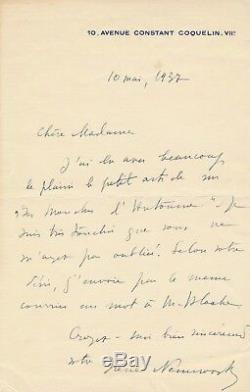 10, AVENUE CONSTANT COQUELIN, VIIE
10 mai, 1937
Chère Madame
J'ai lu avec beaucoup
de plaisir le petit article sur
"Les Mouches d'Automne". Je
suis très touchée que vous ne
m'ayez pas oubliée. Selon votre
désir, j'envoie par le même
courrier un mot à M.
Croyez-moi bien sincèrement
vôtre Irène Némirovsky
ebay